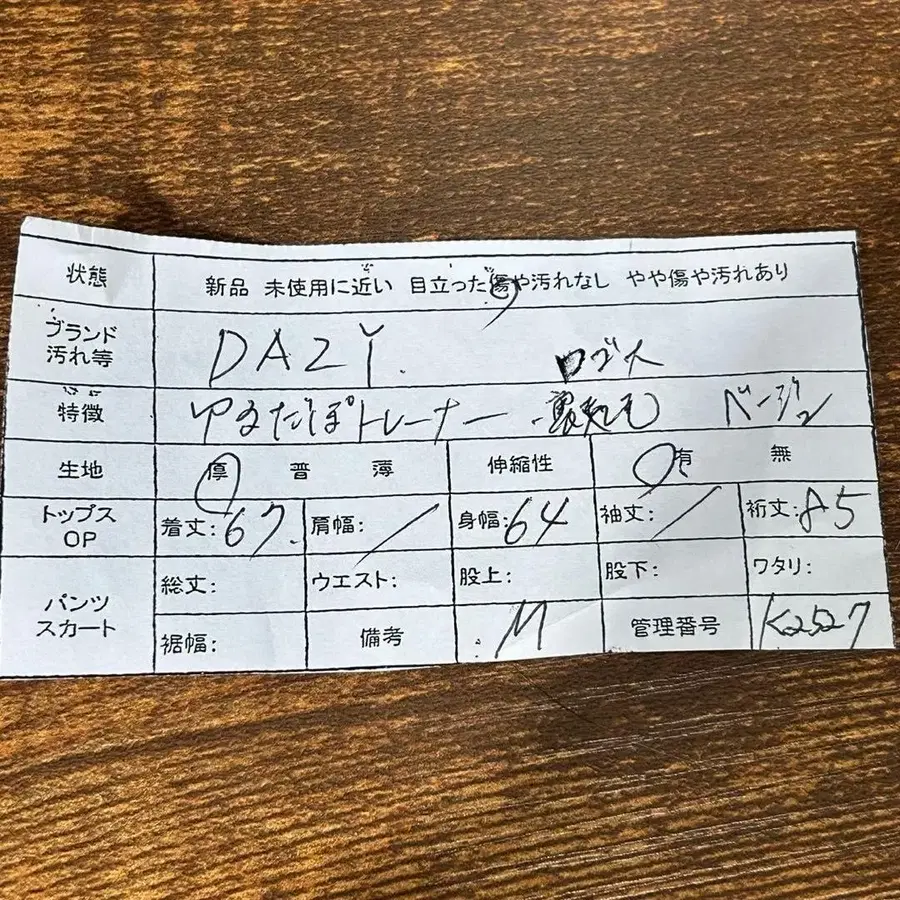 状態 新品 未使用に近い 目立った傷や汚れなし やや傷や汚れあり
ブランド
汚れ等 DAZY ロゴ入
特徴 ゆるだぼトレーナー 裏起毛 ベージュ
生地 厚 普 薄 伸縮性 有 無
トップス
OP 着丈:67. 肩幅:/ 身幅:64 袖丈:/ 裄丈:85
パンツ
スカート 総丈: ウエスト: 股上: 股下: ワタリ:
裾幅: 備考 M 管理番号 K2527